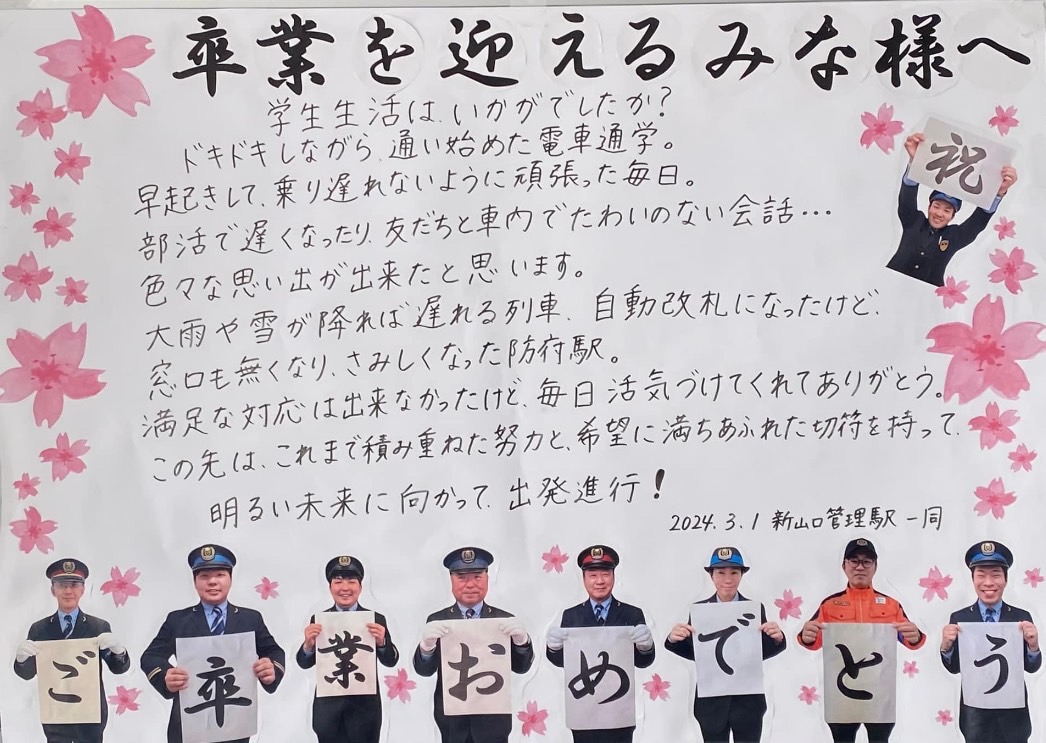 卒業を迎えるみな様へ
学生生活は、いかがでしたか？
ドキドキしながら、通い始めた電車通学。
早起きして、乗り遅れないように頑張った毎日。
部活で遅くなったり、友だちと車内でたわいのない会話…
色々な思い出が出来たと思います。
大雨や雪が降れば遅れる列車、自動改札になったけど、
窓口も無くなり、さみしくなった防府駅。
満足な対応は出来なかったけど、毎日活気づけてくれてありがとう。
この先は、これまで積み重ねた努力と、希望に満ちあふれた切符を持って、
明るい未来に向かって、出発進行！
2024.3.1 新山口管理駅一同
祝
ご卒業おめでとう